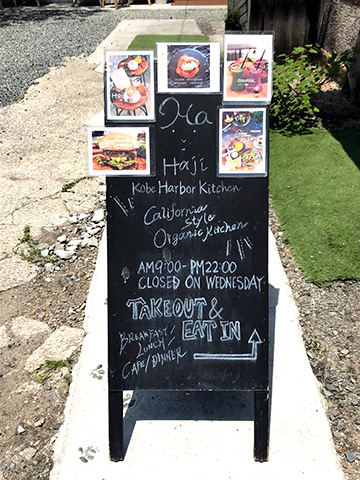 Ha
Haji
Kobe Harbor Kitchen
California
Style
Organic Kitchen
AM9:00-PM22:00
CLOSED ON WEDNESDAY
TAKEOUT &
EAT IN
BREAKFAST/
LUNCH/
CAFE/DINNER